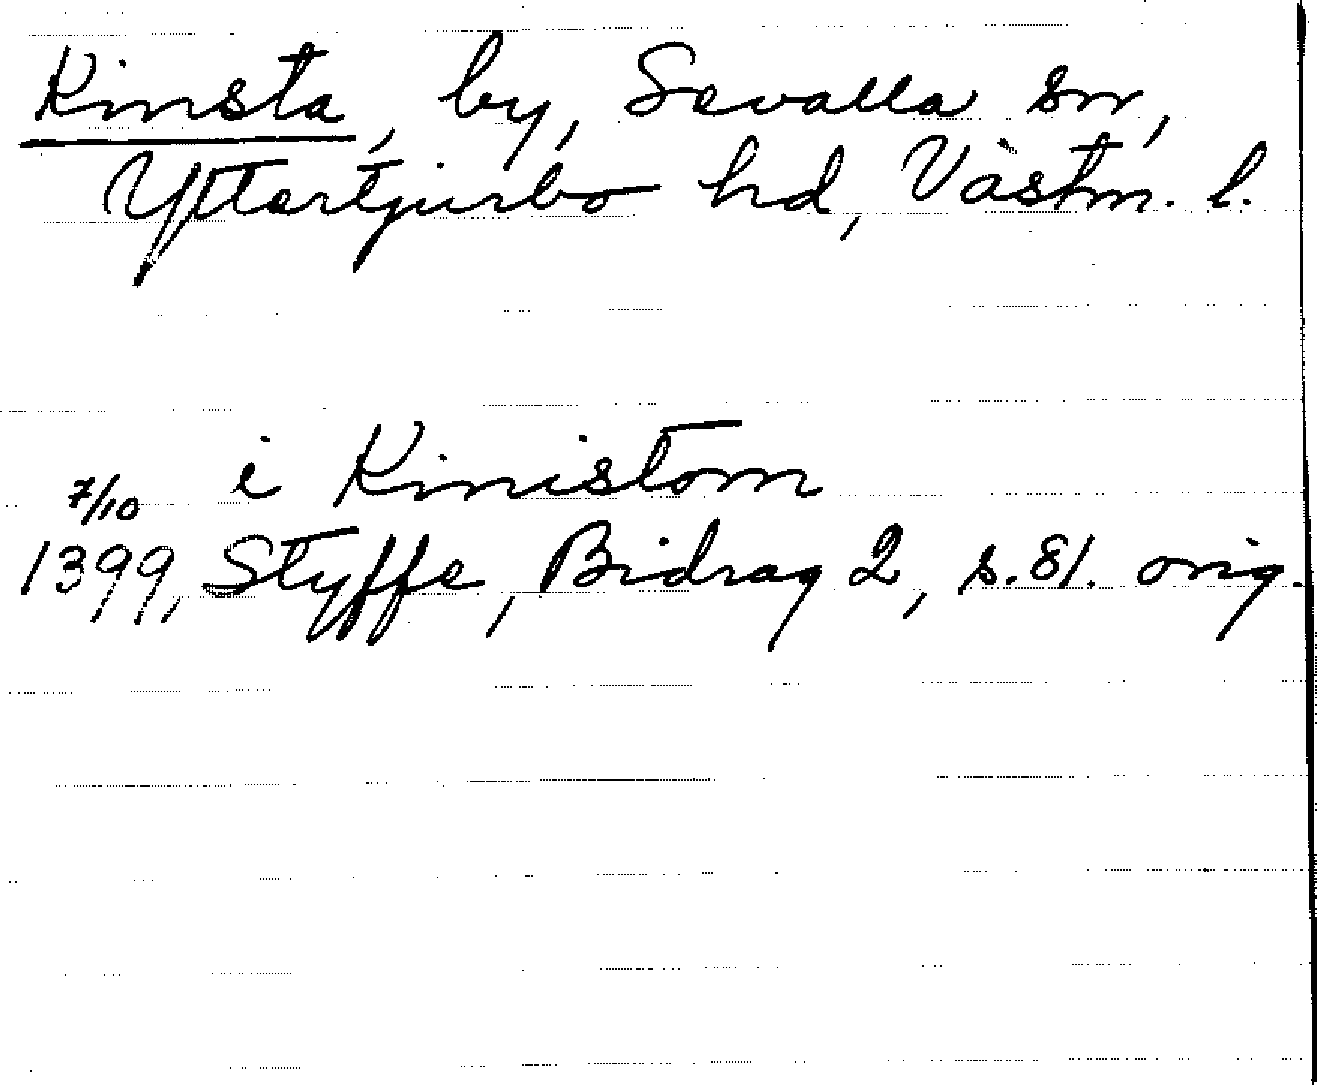 Kinsta, by, Sevalla sn,
Yttertjurbo hd, Västm. l.
i Kinistom
7/10
1399, Styffe, Bidrag 2, s. 81. orig.